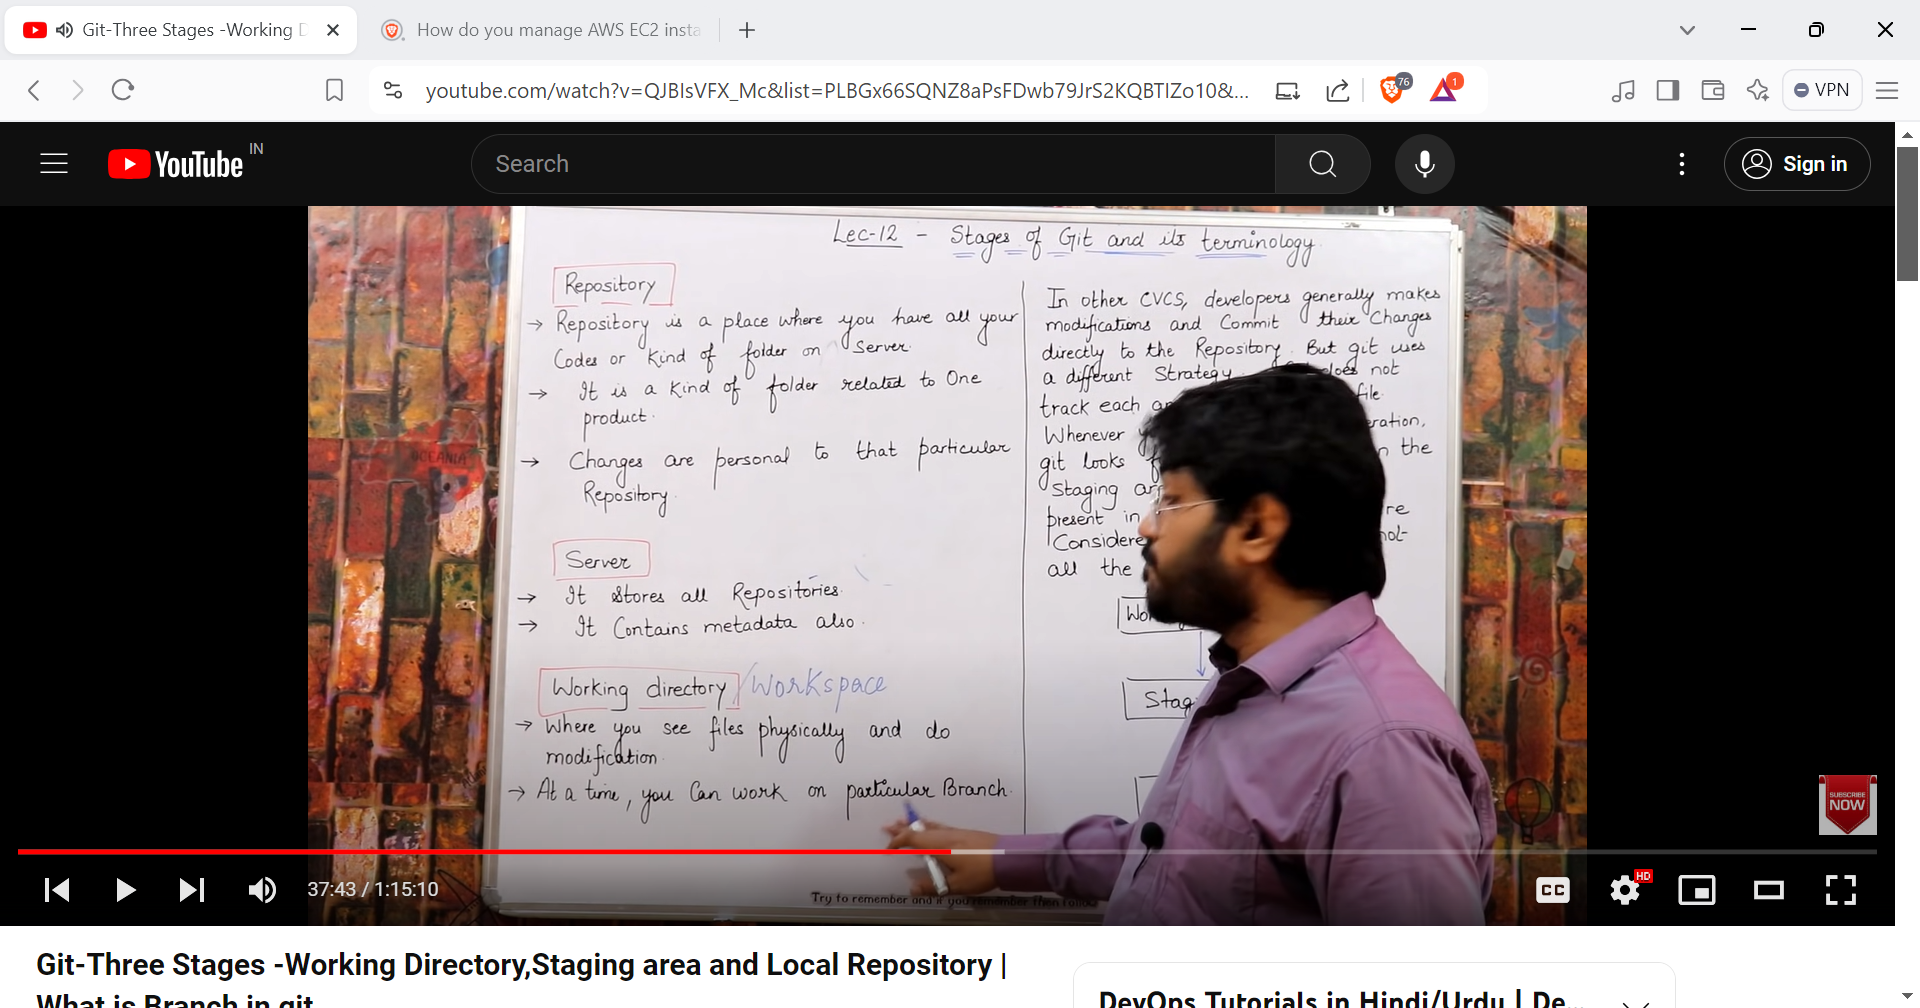 Git-Three Stages -Working D
How do you manage AWS EC2 insta
youtube.com/watch?v=QJBIsVFX_Mc&list=PLBGx66SQNZ8aPsFDwb79JrS2KQBTIZo10&...
76
1
VPN
YouTube IN
Search
Sign in
Lec-12 - Stages of Git and its terminology
Repository
→ Repository is a place where you have all your
Codes or kind of folder on Server.
→ It is a kind of folder related to One
product.
→ Changes are personal to that particular
Repository.
Server
→ It stores all Repositories.
→ It Contains metadata also.
Working directory / Workspace
→ Where you see files physically and do
modification.
→ At a time, you Can work on particular Branch.
In other CVCS, developers generally makes
modifications and Commit their Changes
directly to the Repository. But git uses
a different Strategy. does not
track each file.
Whenever
git looks the
Staging
present in
all the
Try to remember and if you remember then
SUBSCRIBE
NOW
37:43 / 1:15:10
CC
HD
Git-Three Stages -Working Directory,Staging area and Local Repository |
What is Branch in git
DevOps Tutorials in Hindi/Urdu | De...